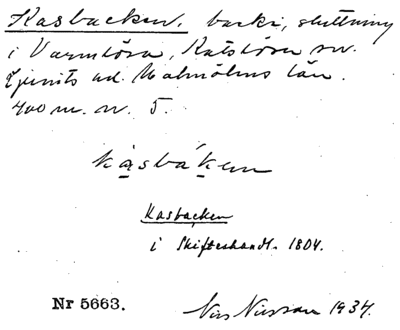 Kasbacken. backe, sluttning
i Varmlösa, Katslösa sn.
Ljunits hd. Malmöhus län.
400 m. n. 5.
kasbáken
Kasbacken
i Skifteshandl. 1804.
Nr 5663.
Nils Nilsson 1934.